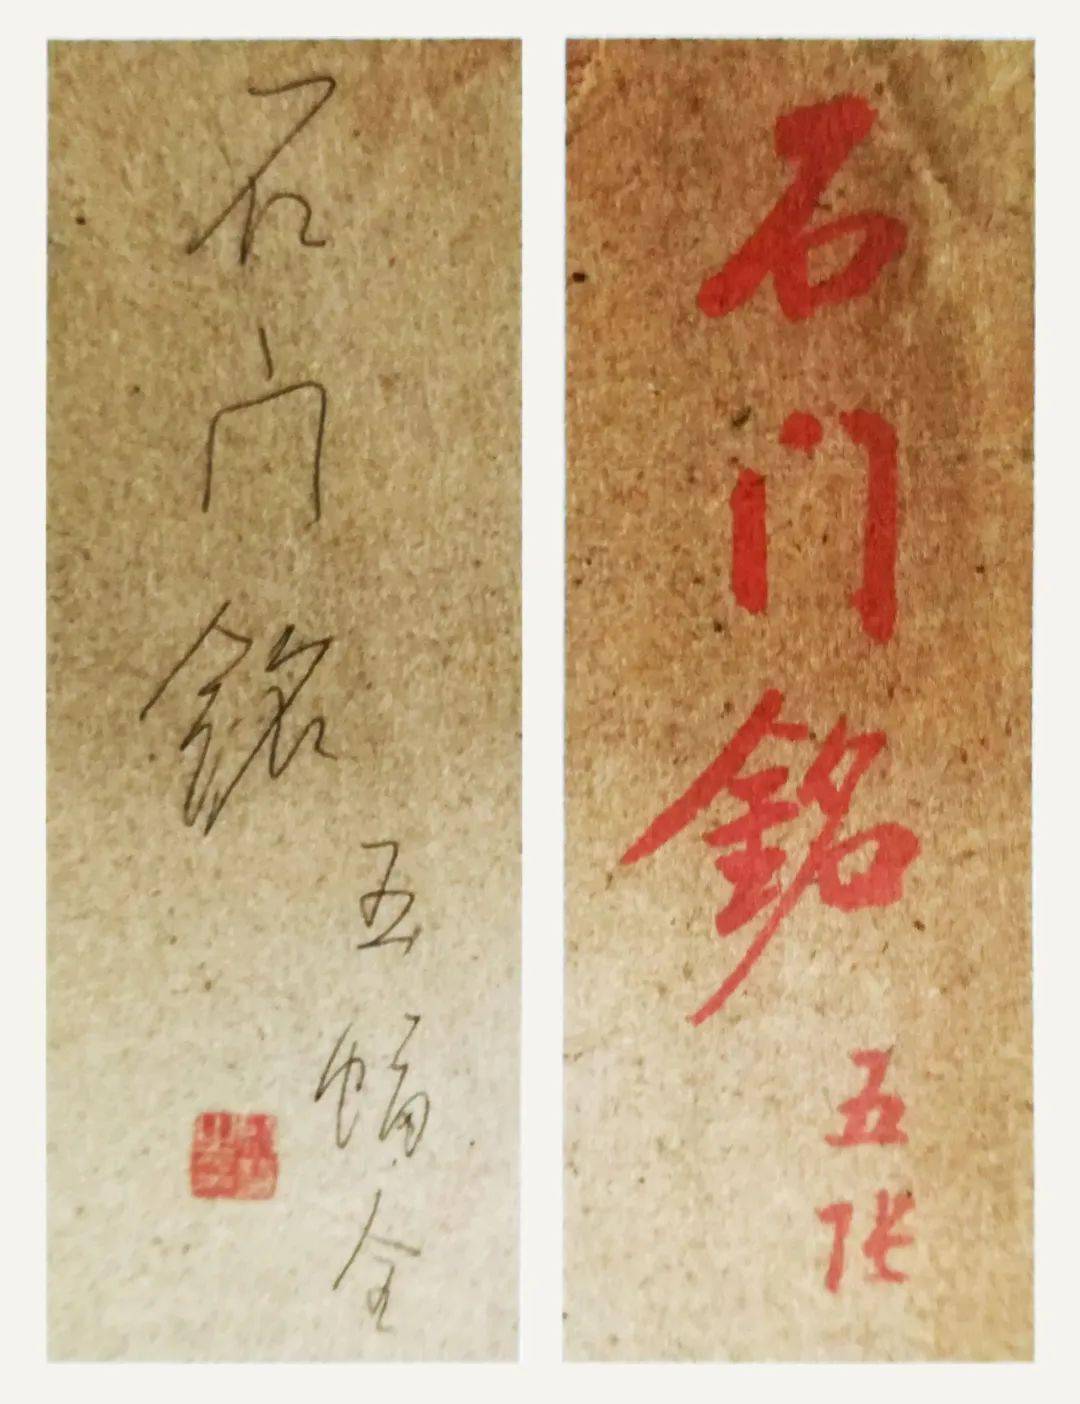 石门銘
五幅全
石门銘
五张